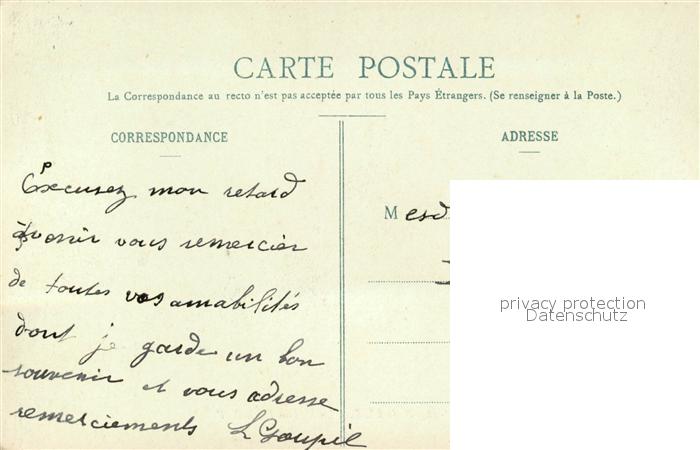 CARTE POSTALE
La Correspondance au recto n'est pas acceptée par tous les Pays Étrangers. (Se renseigner à la Poste.)
CORRESPONDANCE
Excusez mon retard
à venir vous remercier
de toutes vos amabilités
dont je garde un bon
souvenir et vous adresse
remerciements L Goupil
ADRESSE
Mesd
privacy protection
Datenschutz